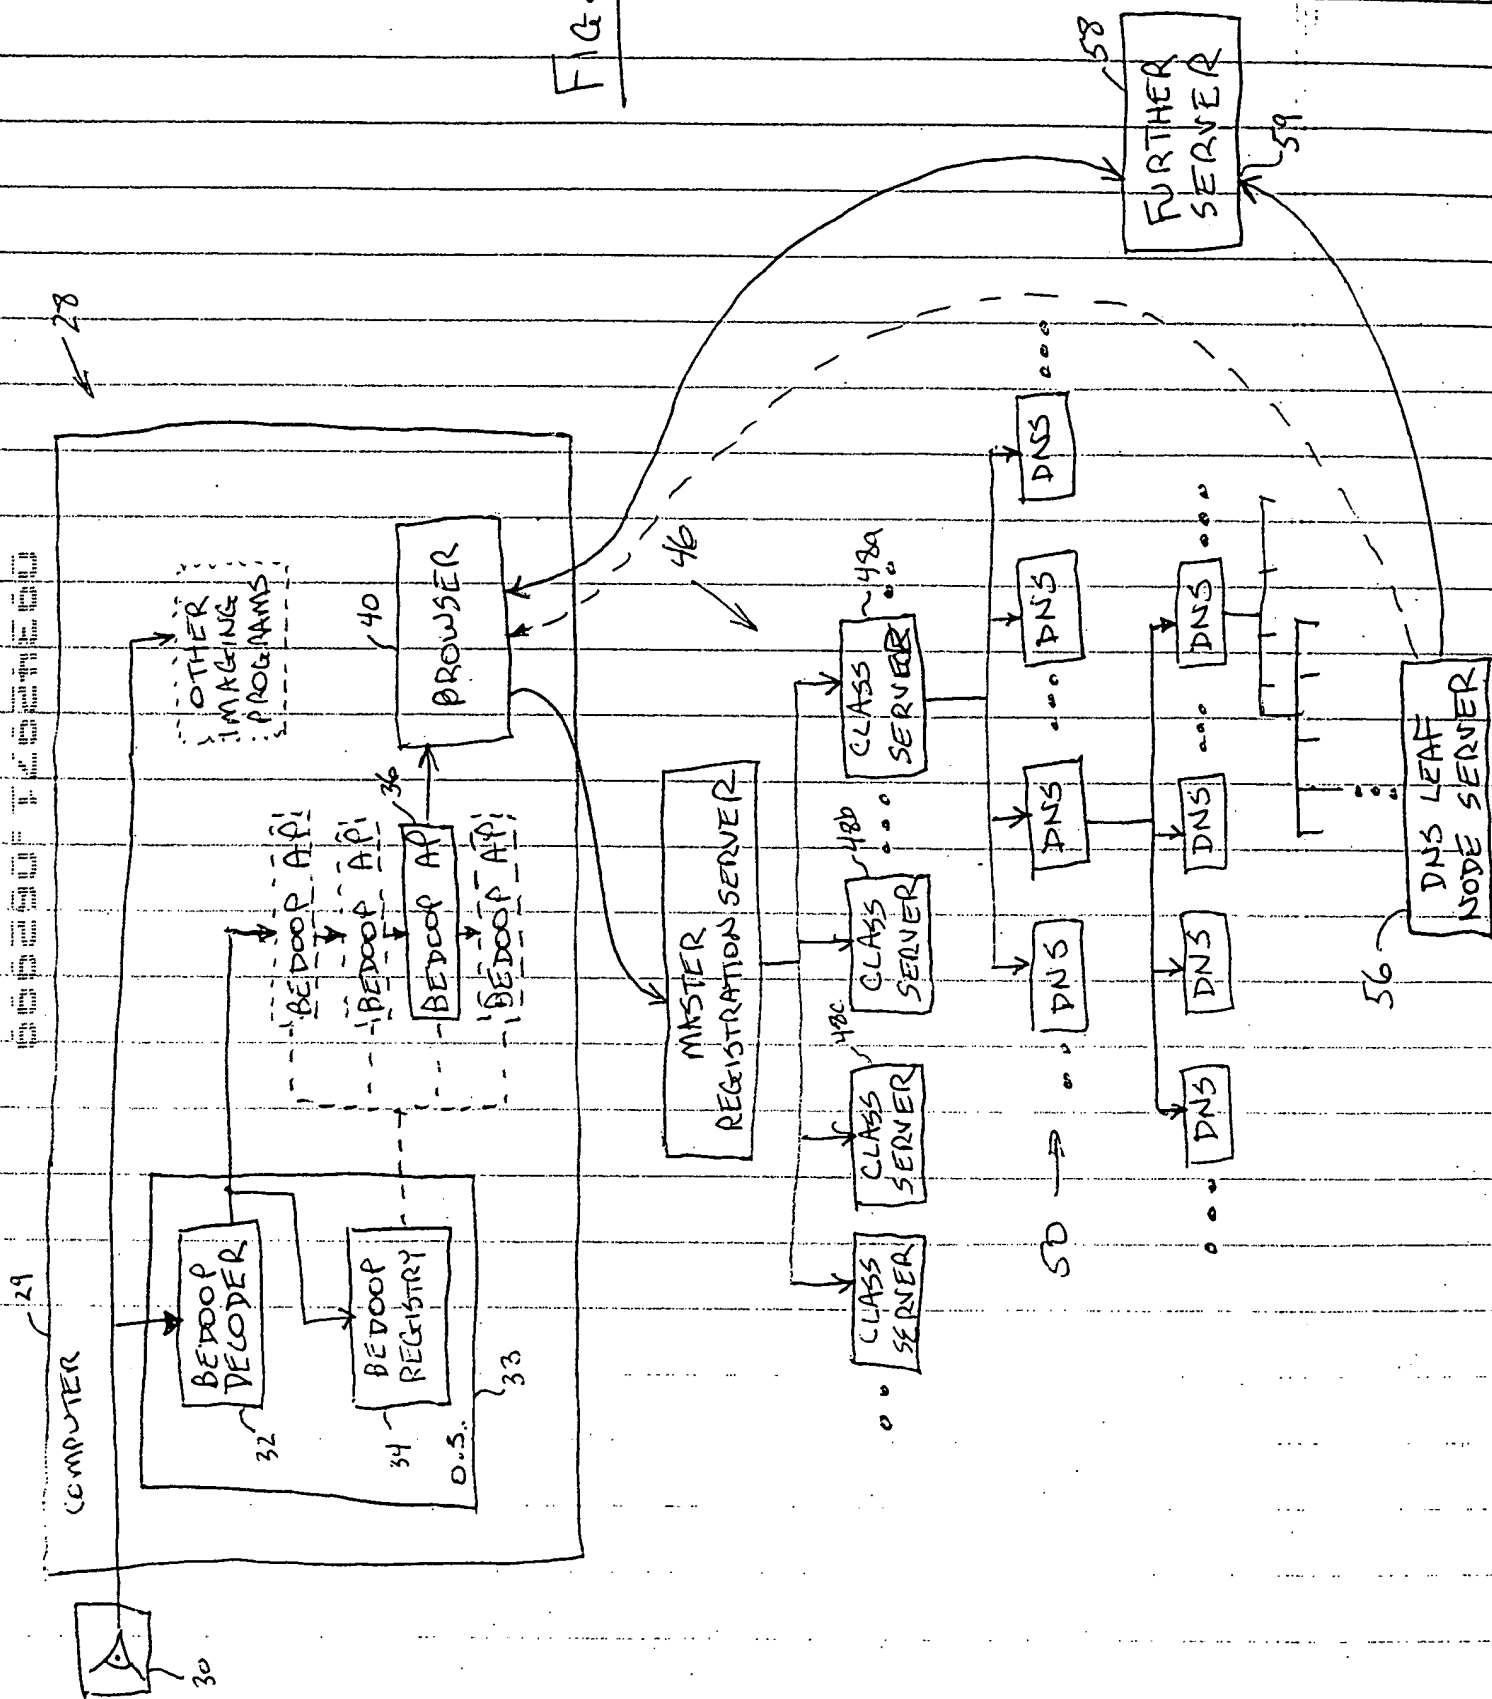 FIG.
28
29
COMPUTER
30
BEDOOP
DECODER
32
BEDOOP
REGISTRY
34
O.S.
33
BEDOOP AP
BEDOOP AP
BEDOOP AP
BEDOOP AP
36
OTHER
IMAGING
PROGRAMS
BROWSER
40
46
MASTER
REGISTRATION SERVER
CLASS
SERVER
CLASS
SERVER
48c
CLASS
SERVER
48b
CLASS
SERVER
48a
50
DNS
DNS
DNS
DNS
DNS
DNS
DNS
DNS
DNS LEAF
NODE SERVER
56
FURTHER
SERVER
58
59